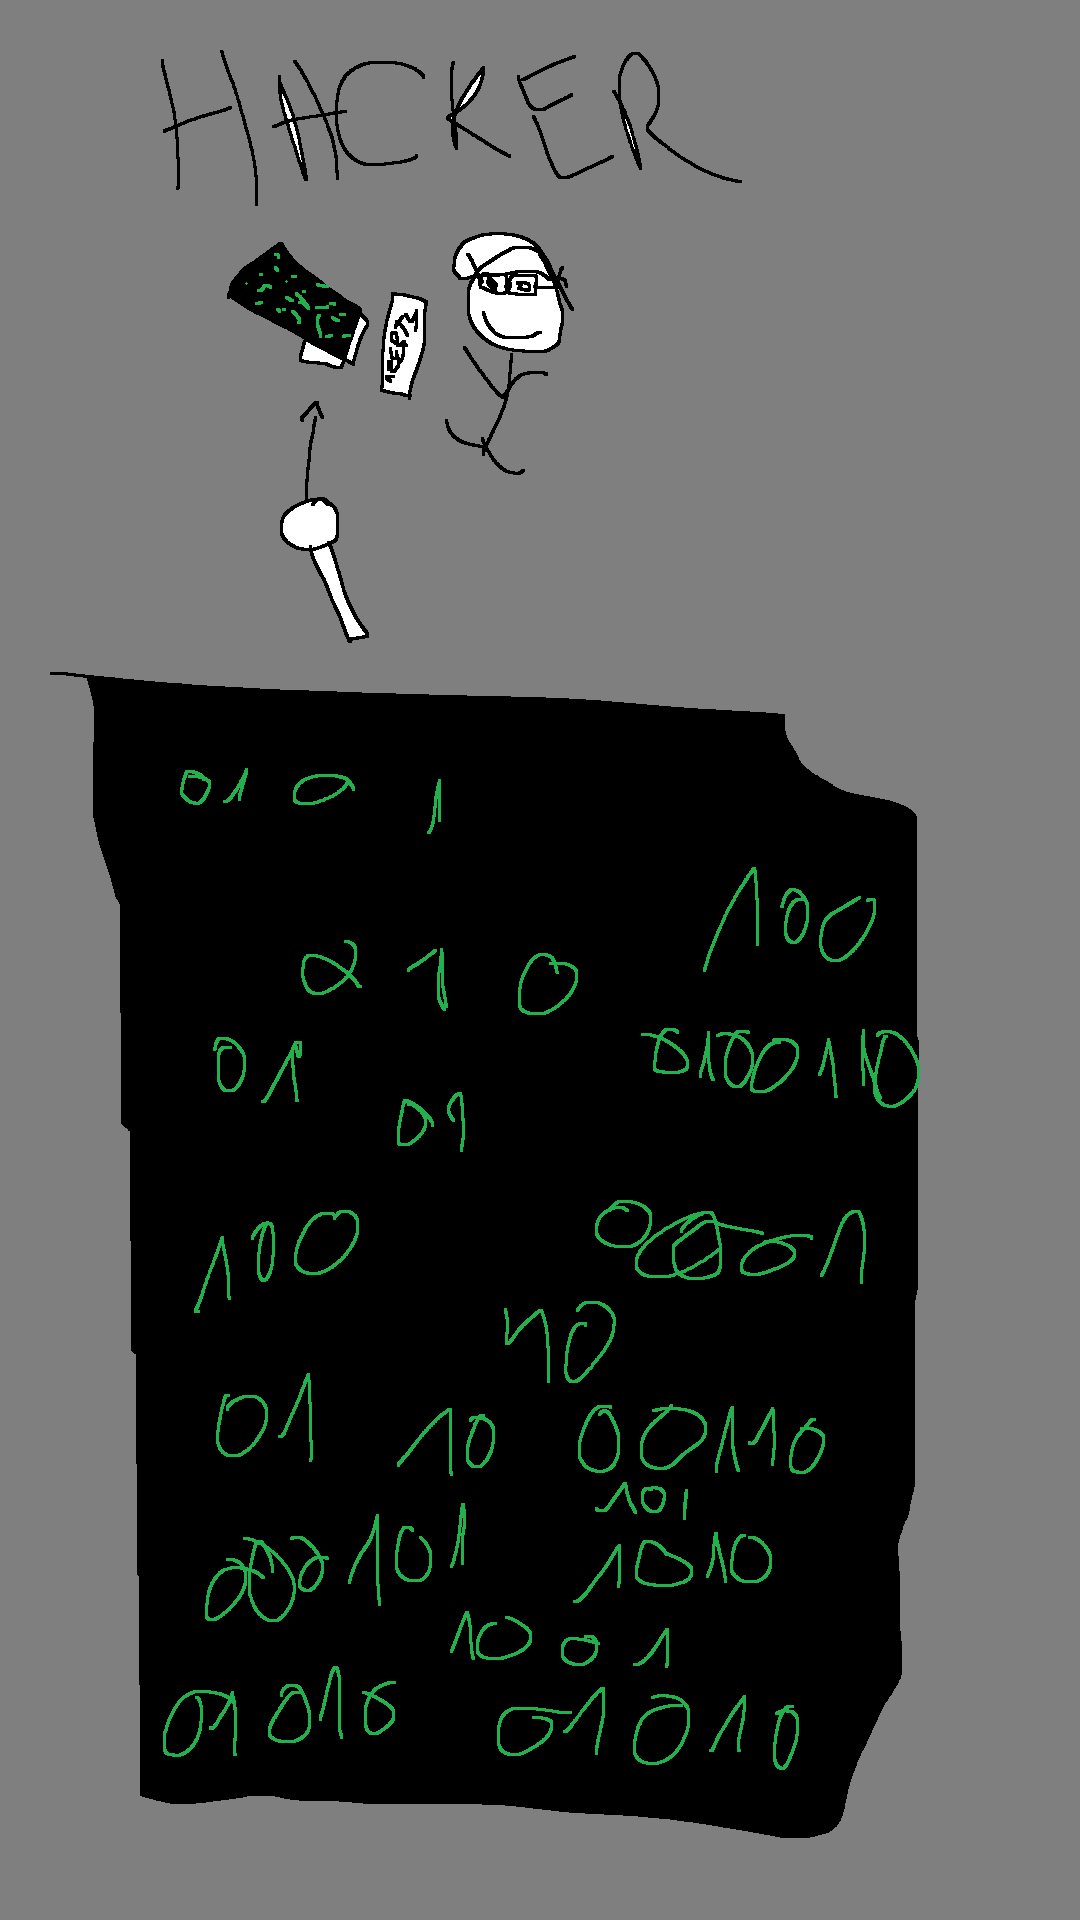 HACKER
01 0 1
100
0 1 0
01
0100110
01
100
00001
10
01 10 00110
101
000101 1010
10 0 1
01010 01010